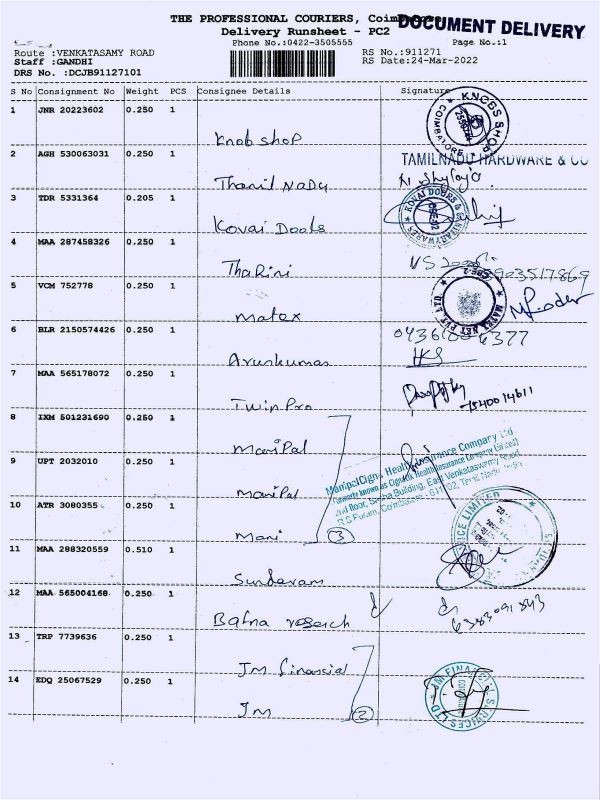 THE PROFESSIONAL COURIERS,
DOCUMENT DELIVERY
Delivery Runsheet - PC2
Phone No.:0422-3505555 Page No.:1
Route :VENKATASAMY ROAD RS No.:911271
Staff :GANDHI RS Date:24-Mar-2022
DRS No. :DCJB91127101
S No Consignment No Weight PCS Consignee Details Signature
1 JNR 20223602 0.250 1
Knob shop
KNOBS SHOP
COIMBATORE
2 AGH 530063031 0.250 1
TAMILNADU HARDWARE & CO
Thamil Nadu
3 TDR 5331364 0.205 1
Kovai Doors
KOVAI DOORS &
SANITARYWARES
4 MAA 287458326 0.250 1
Tharini
5 VCM 752778 0.250 1
Matex
6 BLR 2150574426 0.250 1
Arunkumar
7 MAA 565178072 0.250 1
Twin Pro
8 IXM 501231690 0.250 1
Manipal
ManipalCigna Health Insurance Company Ltd
9 UPT 2032010 0.250 1
Manipal
10 ATR 3080355 0.250 1
Mani 3
11 MAA 288320559 0.510 1
Sundaram
12 MAA 565004168 0.250 1
Bafna research
6383091843
13 TRP 7739636 0.250 1
JM financial
14 EDQ 25067529 0.250 1
JM 2
JM FINANCIAL SERVICES LTD